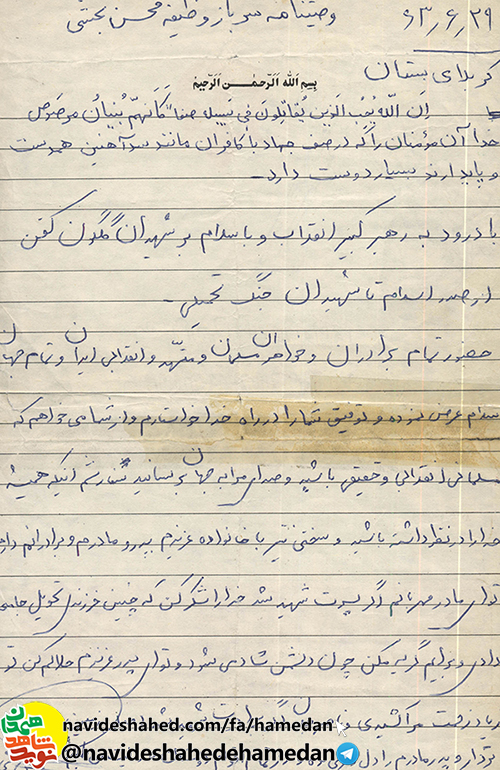 وصیتنامه سرباز وظیفه محسن بجشی ۶۳٫۶٫۲۹
کربلای بستان
بِسِمِ اللهِ اَلرَّحمٰنِ اَلرَّحیِم
اِن اللهَ یُحِبُ الَذینَ یُقاتِلونَ فی سَبیلِه صَفاً کَاَنَهُم بُنیانُ مرصوص
خدا آن مؤمنان را که در صف جهاد با کافران مانند سد آهنین همدست
و پایدارند بسیار دوست دارد-
با درود به رهبر کبیر انقلاب و با سلام بر شهیدان گلگون کفن
از صدر اسلام تا شهیدان جنگ تحمیلی-
حضور تمام برادران و خواهران مسلمان و متعهد و انقلابی ایران و تمام جهان
سلام عرض نموده و توفیق شما را در راه خدا خواستارم و از شما می خواهم که
مسلمانی انقلابی و حقیقی باشید و صدای مرا به جهان برسانید اینکه همیشه
خدا را در نظر داشته باشید و سخنی نیز با خانواده عزیزم پدر و مادرم و برادرانم دارم
ای مادر مهربانم اگر پسرت شهید شد خدا را شکر کن که چنین فرزندی تحویل جامعه
دادی و برایم گریه مکن چون دشمن شاد می شود و تو ای پدر عزیزم حلالم کن تو
زیاد زحمت مرا کشیدی
و پدر مادرم را
navideshahed.com/fa/hamedan
@navideshahedehamedan
نوید شاهد همدان